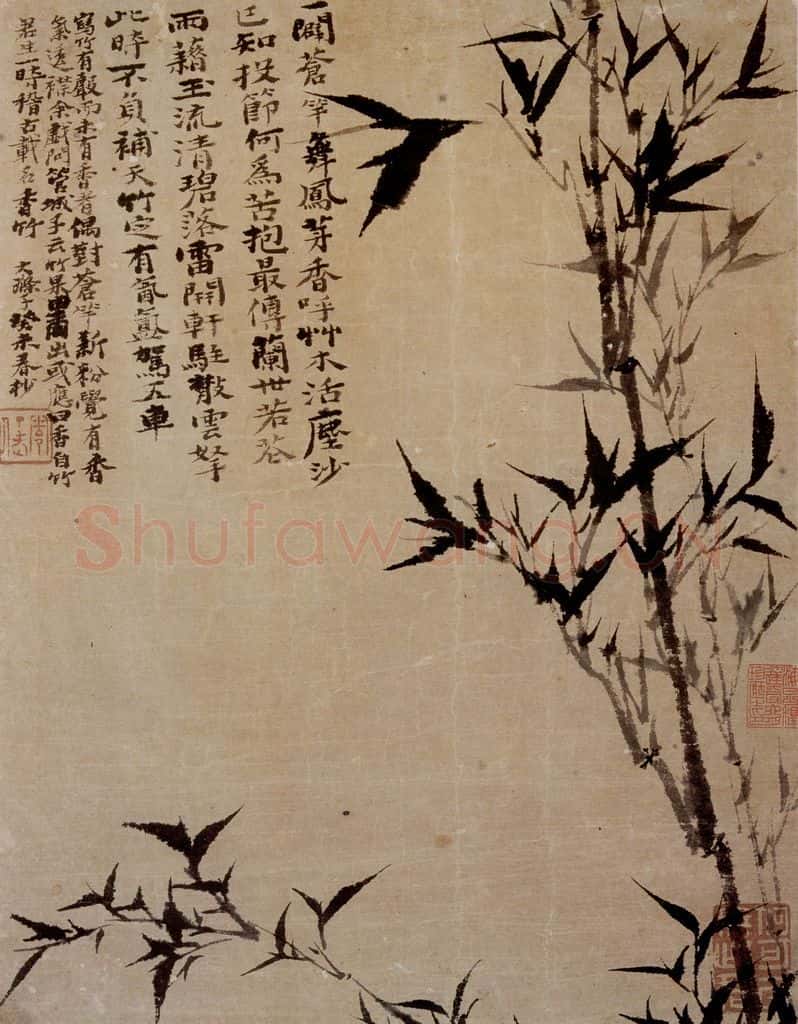 一闢蒼竿舞鳳芽香呼艸木活塵沙
已知投節何為苦抱最傳蘭世若
雨藉玉流清碧落雷開軒駐散雲拏
此時不負補天竹定有氤氳駕五車
寫竹有聲而未有香者偶對蒼竿新粉覺有香
氣透襟余戲問管城子云竹果畫出或應曰香自竹
君生一時稽古載名香竹 大滌子癸未春杪
Shufawang.CN